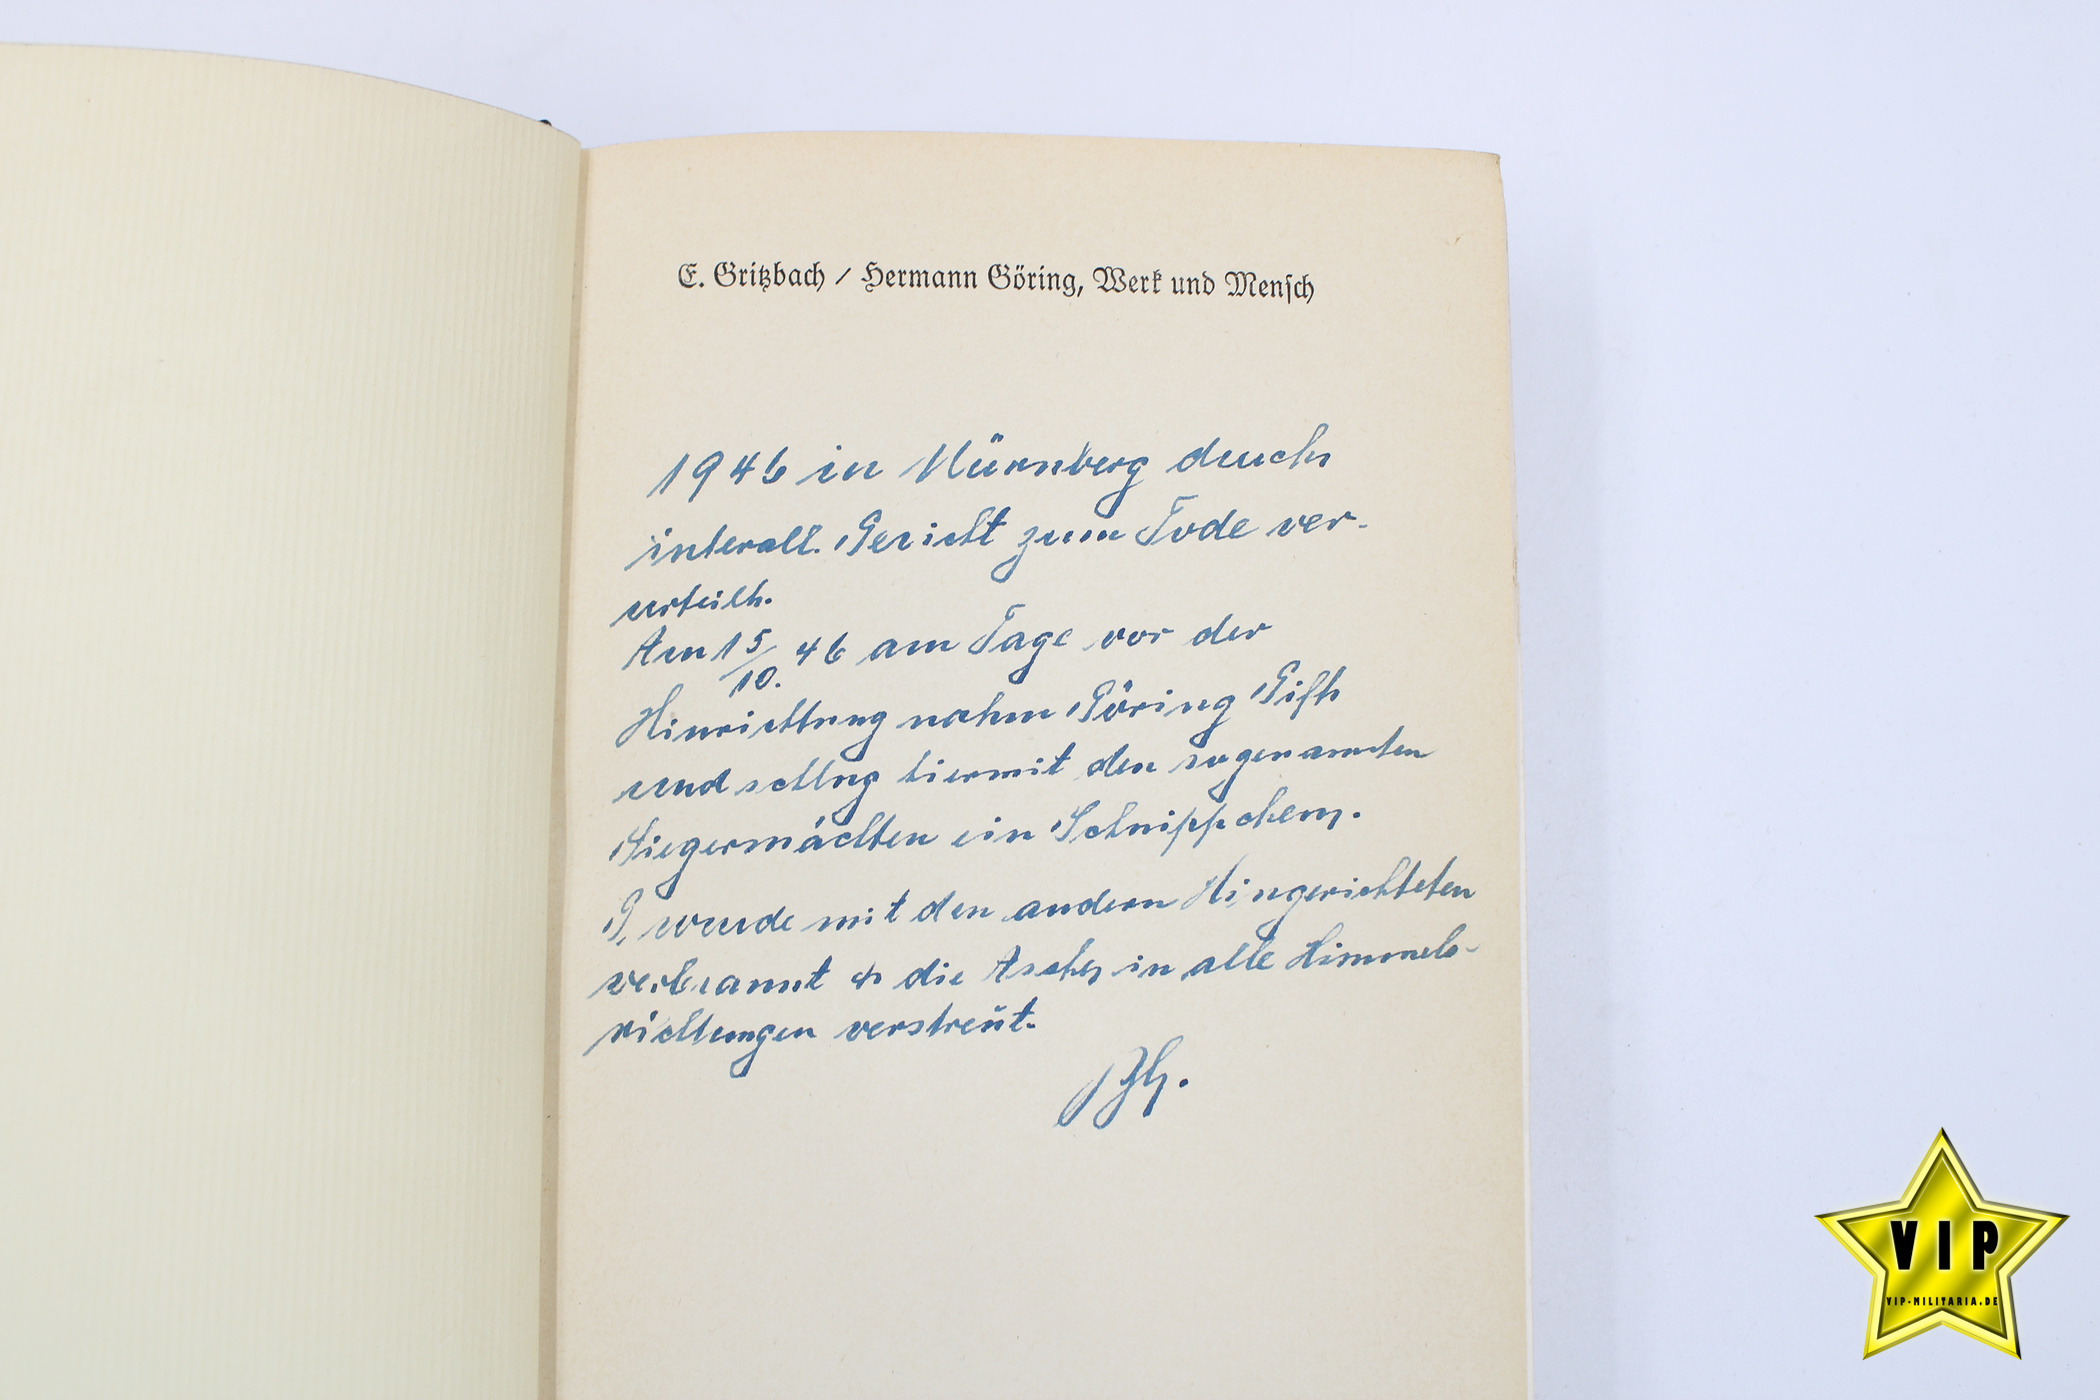 E. Gritzbach / Hermann Göring, Werk und Mensch
1946 in Nürnberg durch
interall. Gericht zum Tode ver-
urteilt.
Am 15/10. 46 am Tage vor der
Hinrichtung nahm Göring Gift
und schlug hiermit den sogenannten
Siegermächten ein Schnippchen.
G. wurde mit den andern Hingerichteten
verbrannt & die Asche in alle Himmels-
richtungen verstreut.
VIP
VIP-MILITARIA.DE